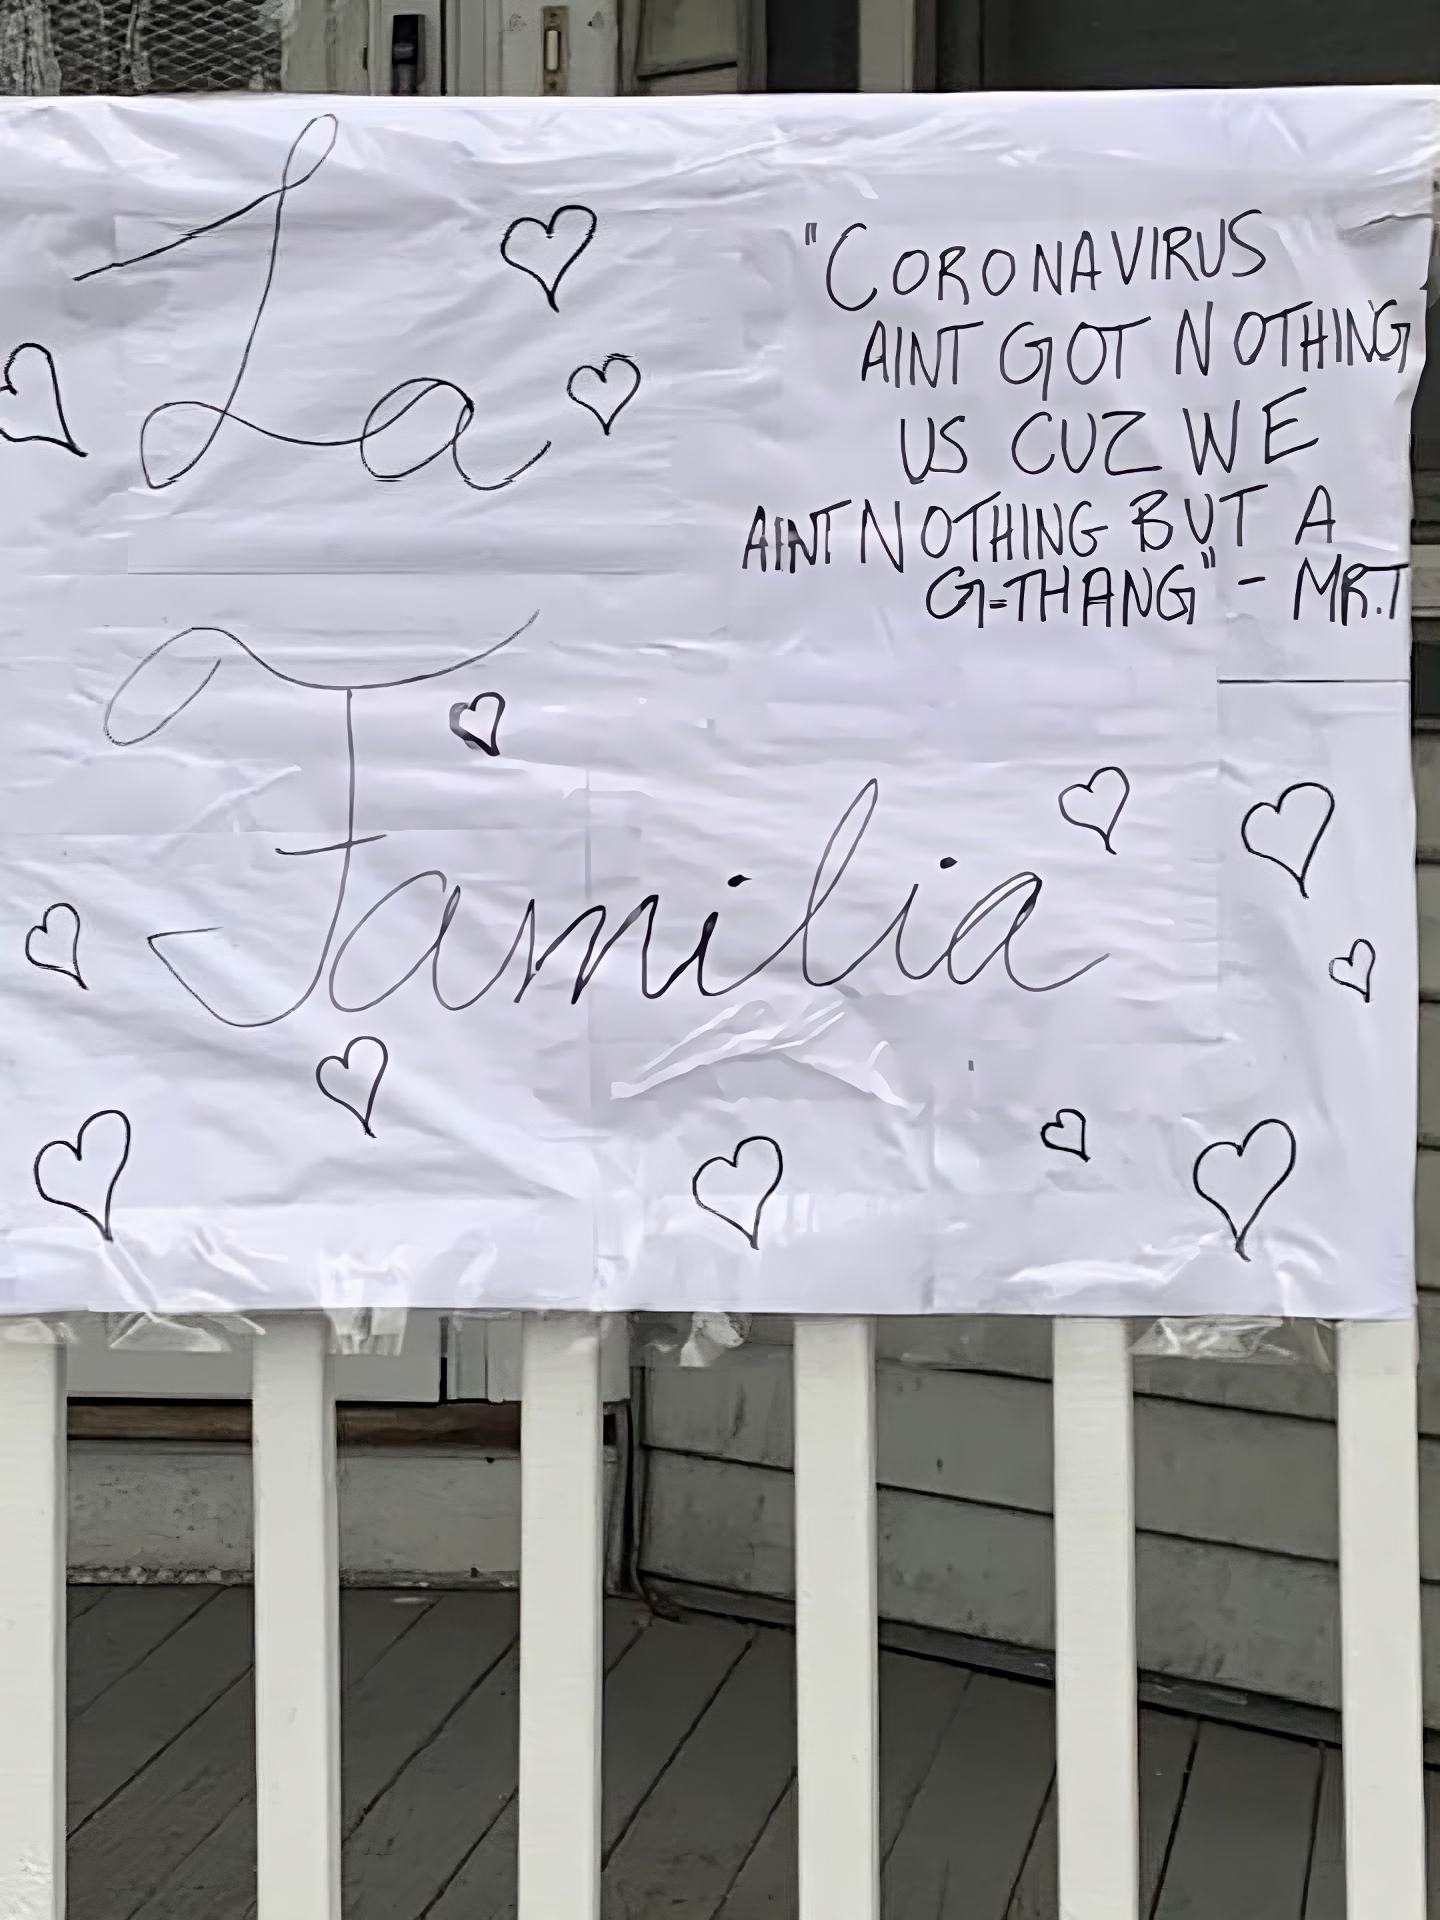 La
Familia
"CORONAVIRUS
AINT GOT NOTHING
US CUZ WE
AINT NOTHING BUT A
G-THANG" - MR.T